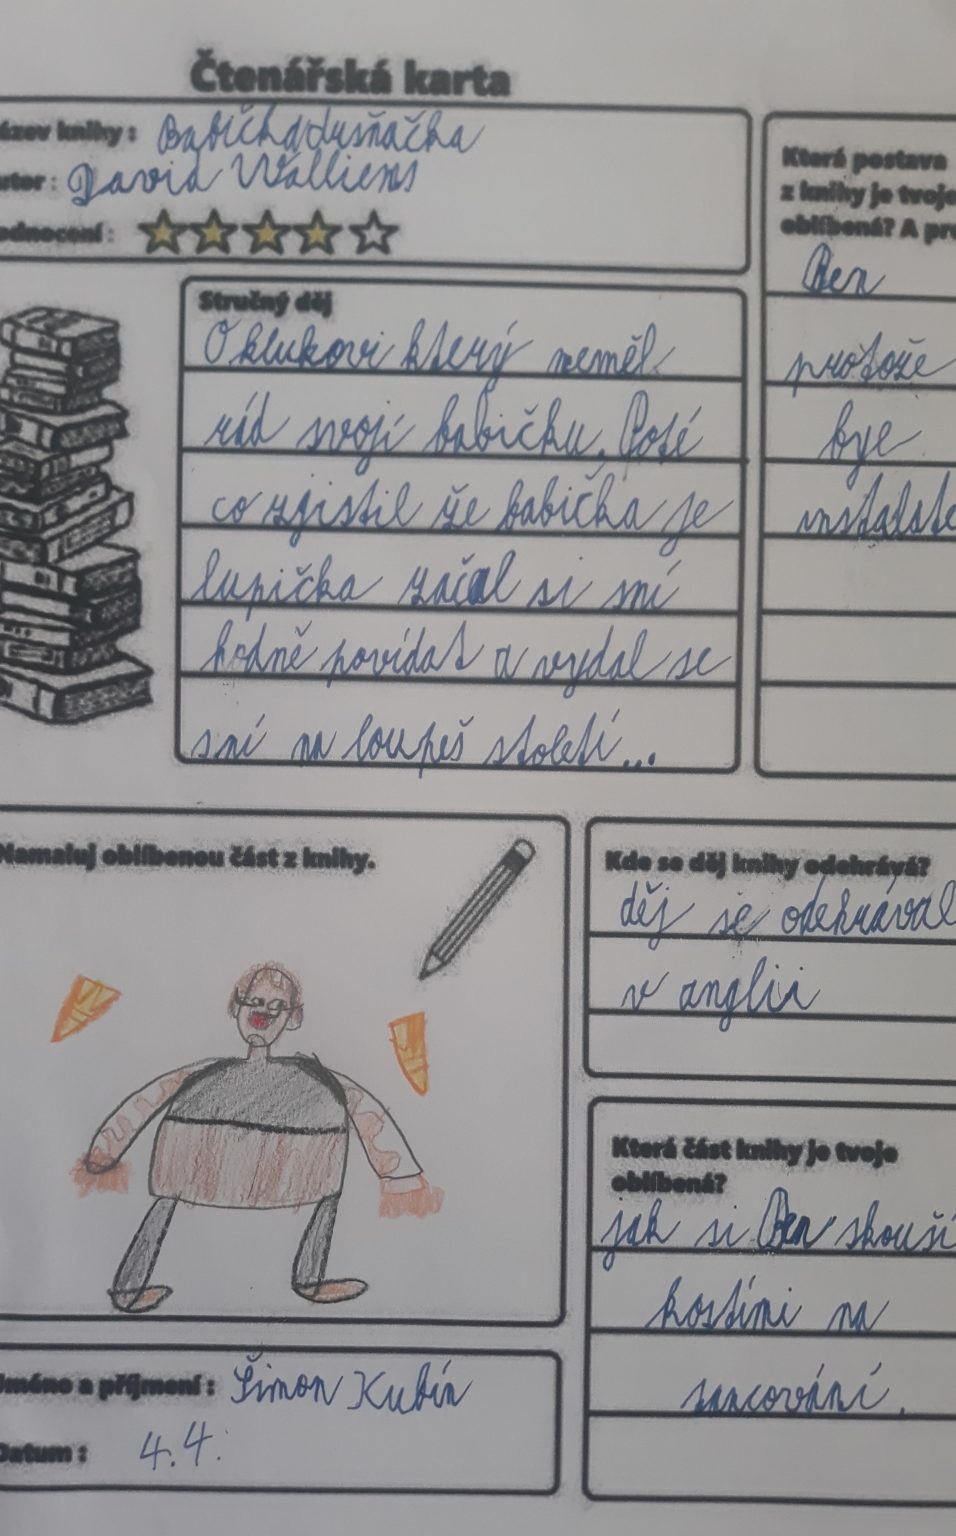 Čtenářská karta
ázev knihy : Babička drsňačka
utor : David Walliems
odnocení :
Stručný děj
O klukovi který neměl
rád svojí babičku. Poté
co zjistil že babička je
lupička začal si sní
hodně povídat a vydal se
sní na loupeš století...
Která postava
z knihy je tvoje
oblíbená? A pro
Ben
protože
bye
instalate
Namaluj oblíbenou část z knihy.
Kde se děj knihy odehrává?
děj se odehrával
v anglii
Která část knihy je tvoje
oblíbená?
jak si Ben skouší
kostími na
tancování.
méno a příjmení : Šimon Kubín
Datum : 4.4.